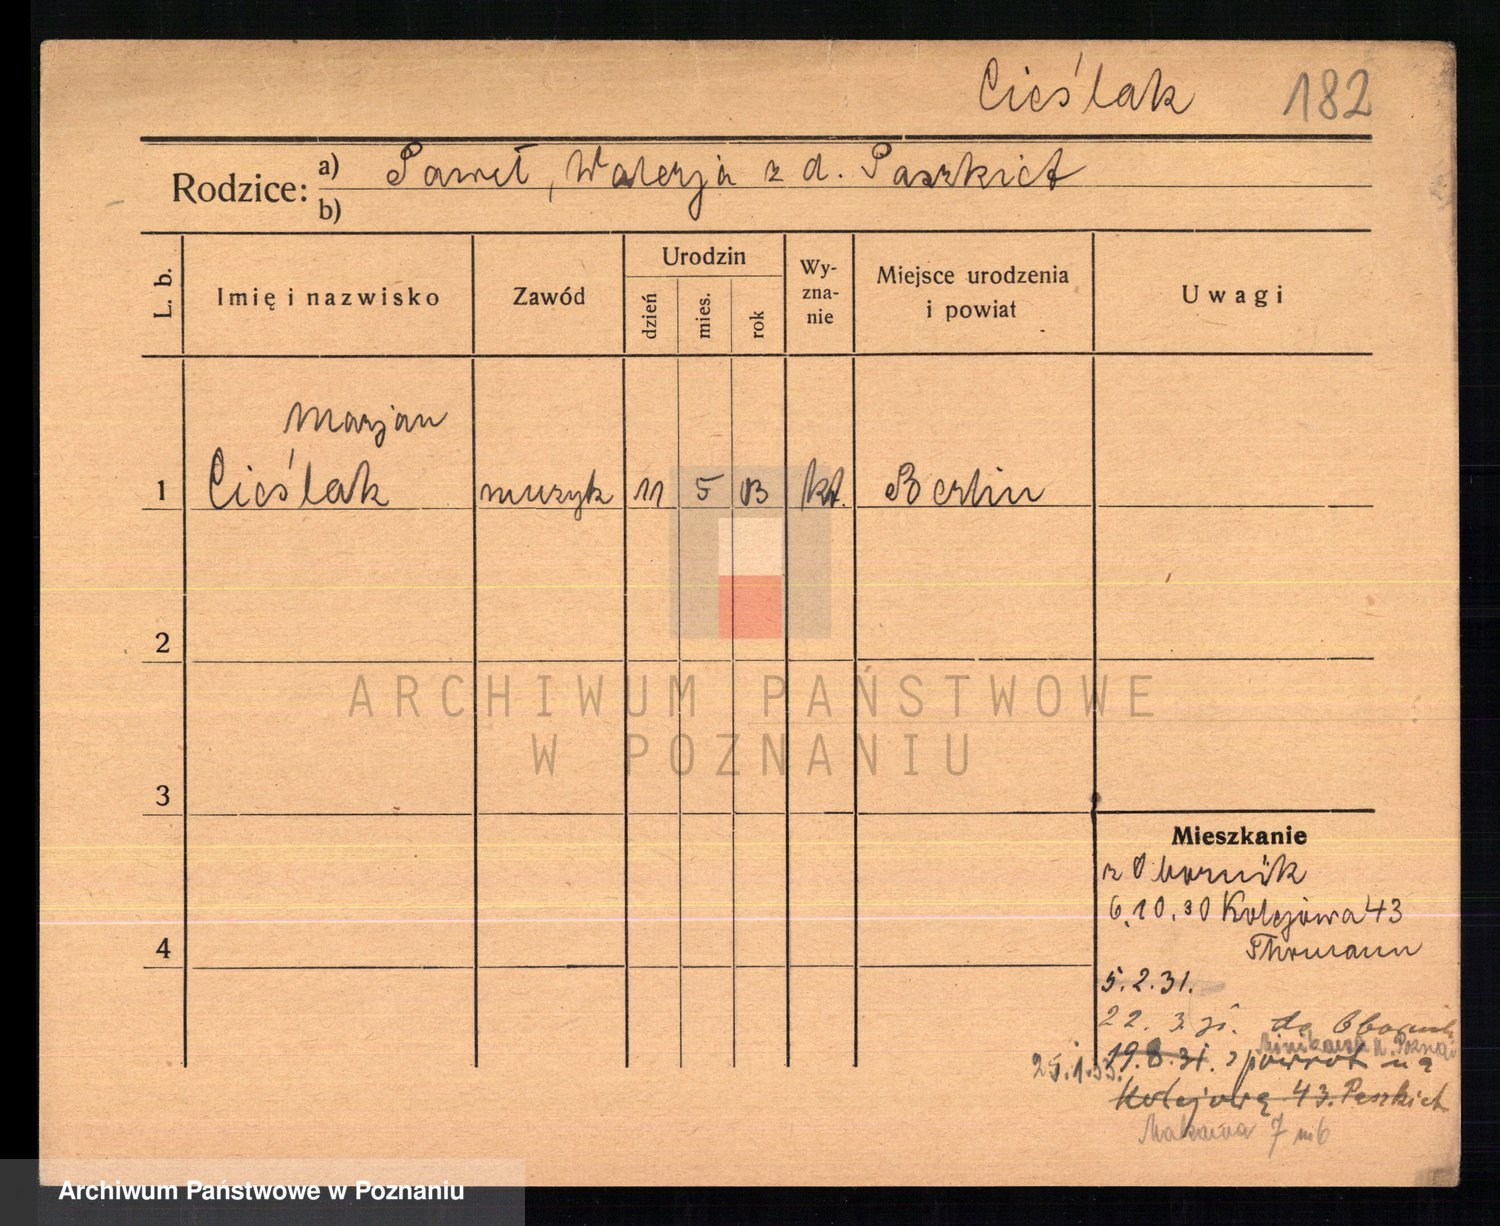 Cieślak 182
Rodzice: a) Paweł, Walerja z d. Paszkiet
b)
L. b. Imię i nazwisko Zawód Urodzin dzień mies. rok Wy-zna-nie Miejsce urodzenia i powiat Uwagi
Marjan
1 Cieślak muzyk 11 5 03 kat. Berlin
2
ARCHIWUM PAŃSTWOWE
W POZNANIU
3
Mieszkanie
z Obornik
6.10.30 Kolejowa 43
4
Thomann
5.2.31.
22. 3. 31. do Obornik
19.8.31. z powrot na
25.1.33.
Kolejową 43. Paszkiet
7 m 6
Archiwum Państwowe w Poznaniu